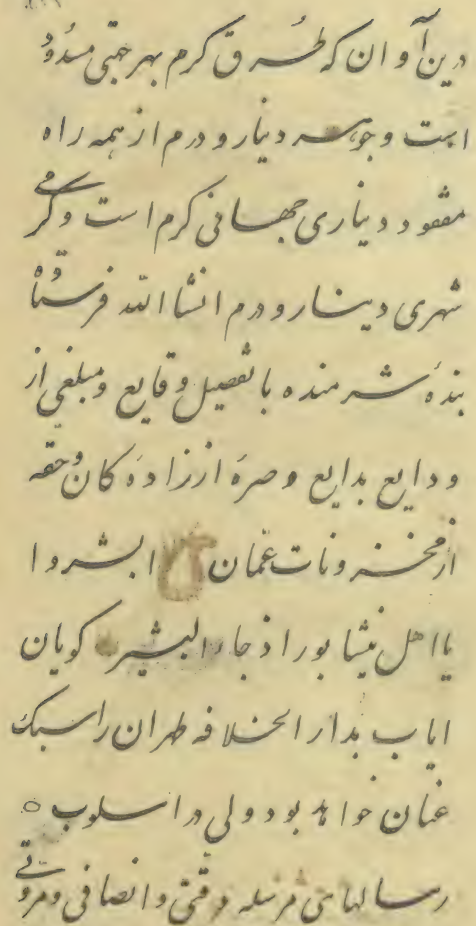 درین آوان که طرق کرم بهر جهتی مسدود
است و جوهر دینار و درم از همه راه
مفقود دیناری جهانی کرم است و کرمی
شهری دینار و درم انشا الله فرستاده
بندهٔ شرمنده با تفصیل وقایع و مبلغی از
ودایع بدایع و صرهٔ از زادهٔ کان و حقه
از مخزونات عمان ابشروا
یا اهل نیشابور اذ جاء البشیر کویان
ایاب بدار الخلافه طهران را سبک
عنان خواهد بود ولی در اسلوب
رسالهای مرسله دقتی و انصافی و مروتی